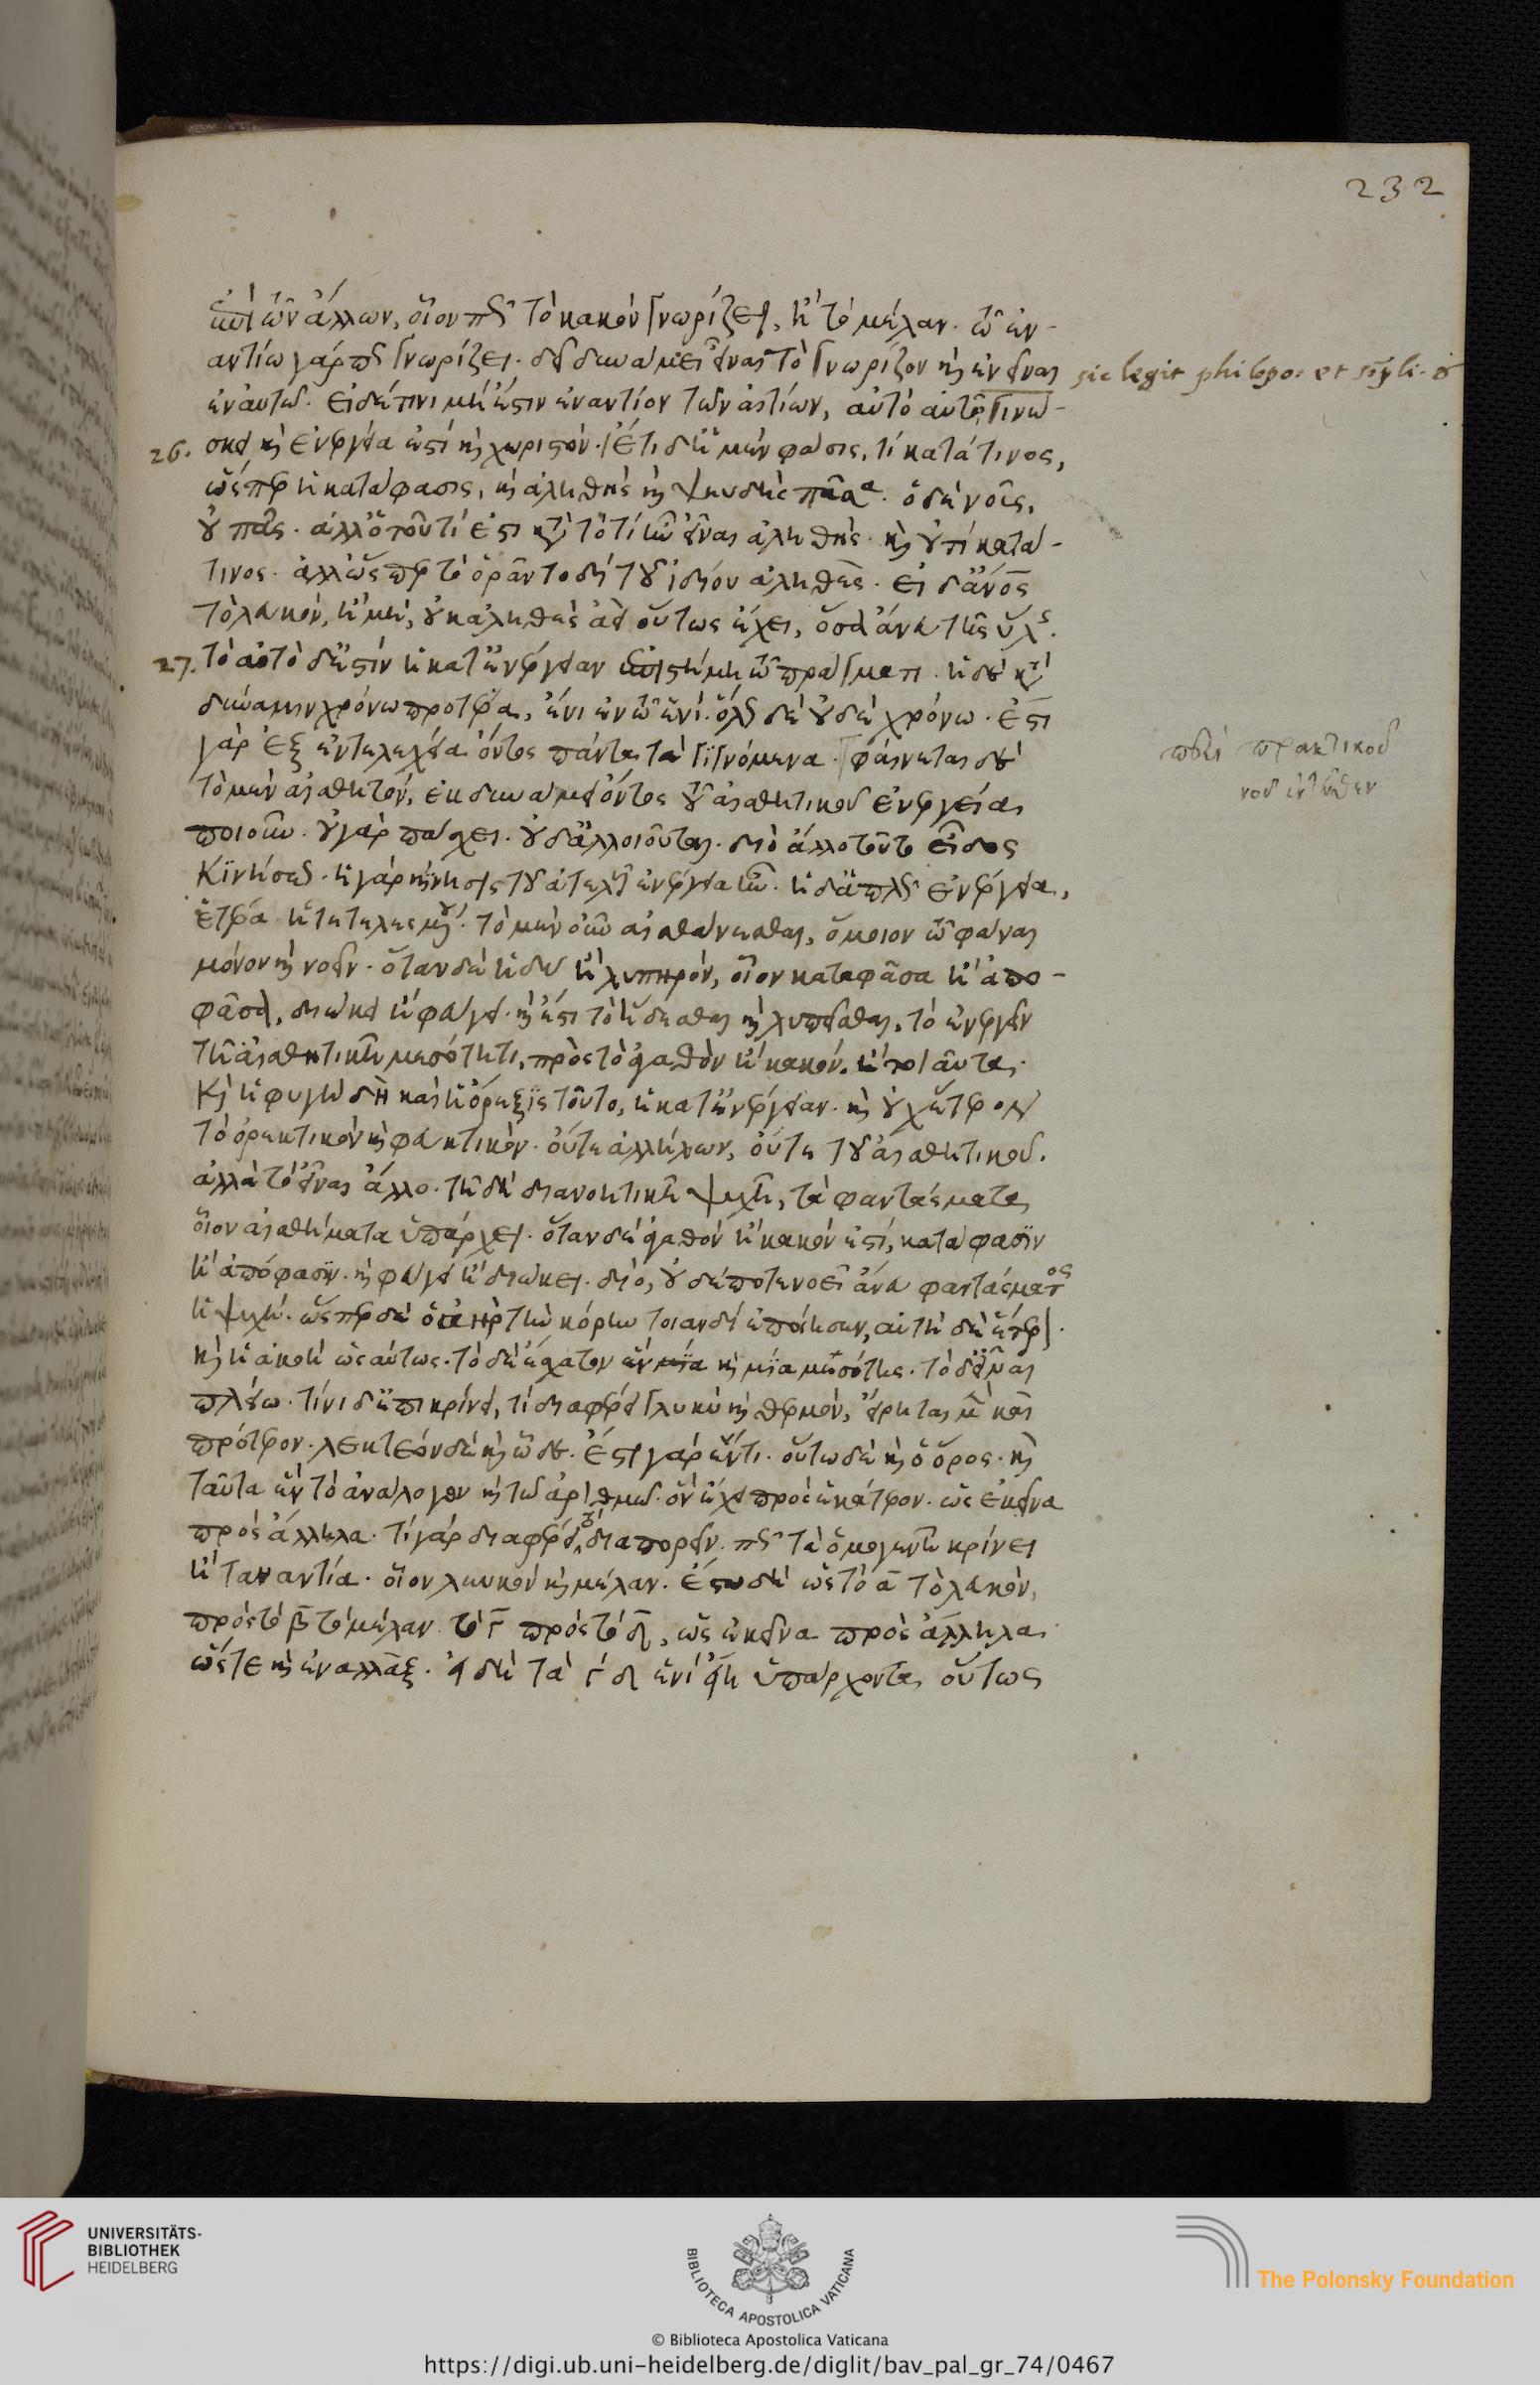 232
ἐπὶ τῶν ἄλλων, οἷον πῶς τὸ κακὸν γνωρίζει, ἢ τὸ μέλαν. τῷ ἐν-
αντίῳ γάρ πως γνωρίζει. δεῖ δὲ δυνάμει εἶναι τὸ γνωρίζον καὶ ἓν εἶναι
sic legit philopo. et simpli.
ἐν αὐτῷ. εἰ δέ τινι μή ἐστιν ἐναντίον τῶν αἰτίων, αὐτὸ αὑτὸ γινώ-
26. σκει καὶ ἐνεργείᾳ ἐστὶ καὶ χωριστόν. ἔστι δ' ἡ μὲν φάσις, τὶ κατά τινος,
ὥσπερ ἡ κατάφασις, καὶ ἀληθὴς ἢ ψευδὴς πᾶσα. ὁ δὲ νοῦς,
οὐ πᾶς. ἀλλ' ὁ τοῦ τί ἐστι κατὰ τὸ τί ἦν εἶναι ἀληθής. καὶ οὐ τὶ κατά
τινος. ἀλλ' ὥσπερ τὸ ὁρᾶν τοῦ ἰδίου ἀληθές. εἰ δ' ἄνθρωπος
τὸ λευκόν, ἢ μή, οὐκ ἀληθὲς ἀεί οὕτως ἔχει, ὅσα ἄνευ τῆς ὕλης.
27. τὸ αὐτὸ δ' ἐστὶν ἡ κατ' ἐνέργειαν ἐπιστήμη τῷ πράγματι. ἡ δὲ κατὰ
δύναμιν χρόνῳ προτέρα, ἐνὶ ἐν τῷ ἑνί. ὅλως δὲ οὐδὲ χρόνῳ. ἔστι
γὰρ ἐξ ἐντελεχείᾳ ὄντος πάντα τὰ γιγνόμενα. φαίνεται δὲ
περὶ πρακτικοῦ
τὸ μὲν αἰσθητόν, ἐκ δυνάμει ὄντος τοῦ αἰσθητικοῦ ἐνεργείᾳ
νοῦ ἐντεῦθεν
ποιοῦν. οὐ γὰρ πάσχει. οὐδ' ἀλλοιοῦται. διὸ ἄλλο τοῦτο εἶδος
κινήσεως. ἡ γὰρ κίνησις τοῦ ἀτελοῦς ἐνέργεια ἦν. ἡ δ' ἁπλῶς ἐνέργεια,
ἑτέρα ἡ τετελεσμένου. τὸ μὲν οὖν αἰσθάνεσθαι, ὅμοιον τῷ φάναι
μόνον καὶ νοεῖν. ὅταν δὲ ἡδὺ ἢ λυπηρόν, οἷον καταφᾶσα ἢ ἀπο-
φᾶσα, διώκει ἢ φεύγει. καὶ ἔστι τὸ ἥδεσθαι καὶ λυπεῖσθαι, τὸ ἐνεργεῖν
τῇ αἰσθητικῇ μεσότητι, πρὸς τὸ ἀγαθὸν ἢ κακόν. ᾗ τοιαῦτα.
καὶ ἡ φυγὴ δὴ καὶ ἡ ὄρεξις τοῦτο, ἡ κατ' ἐνέργειαν. καὶ οὐχ ἕτερον
τὸ ὀρεκτικὸν καὶ φευκτικόν. οὔτε ἀλλήλων, οὔτε τοῦ αἰσθητικοῦ.
ἀλλὰ τὸ εἶναι ἄλλο. τῇ δὲ διανοητικῇ ψυχῇ, τὰ φαντάσματα
οἷον αἰσθήματα ὑπάρχει. ὅταν δὲ ἀγαθὸν ἢ κακὸν ἐστί, κατάφασιν
ἢ ἀπόφασιν. καὶ φεύγει ἢ διώκει. διό, οὐδέποτε νοεῖ ἄνευ φαντάσματος
ἡ ψυχή. ὥσπερ δὲ ὁ ἀὴρ τὴν κόρην τοιανδὶ ἐποίησεν, αὐτὴ δὲ ἕτερον.
καὶ ἡ ἀκοὴ ὡσαύτως. τὸ δὲ ἔσχατον ἓν καὶ μία μεσότης. τὸ δ' εἶναι
πλείω. τίνι δ' ἐπικρίνει, τί διαφέρει γλυκὺ καὶ θερμόν, εἴρηται μὲν καὶ
πρότερον. λεκτέον δὲ καὶ ὧδε. ἔστι γὰρ ἕν τι. οὕτω δὲ καὶ ὁ ὅρος. καὶ
ταῦτα ἓν τὸ ἀνάλογον καὶ τῷ ἀριθμῷ. ὃν ἔχει πρὸς ἑκάτερον. ὡς ἐκεῖνα
πρὸς ἄλληλα. τί γὰρ διαφέρει τὸ διαπορεῖν. πῶς τὰ ὁμογενῆ κρίνει
ἢ τἀναντία. οἷον λευκὸν καὶ μέλαν. ἔστω δὴ ὡς τὸ α τὸ λευκόν,
πρὸς τὸ β τὸ μέλαν. τὸ γ πρὸς τὸ δ, ὡς ἐκεῖνα πρὸς ἄλληλα.
ὥστε καὶ ἐναλλάξ. εἰ δὴ τὰ γδ ἑνὶ εἴη ὑπάρχοντα οὕτως
UNIVERSITÄTS-
BIBLIOTHEK
HEIDELBERG
BIBLIOTECA APOSTOLICA VATICANA
© Biblioteca Apostolica Vaticana
The Polonsky Foundation
https://digi.ub.uni-heidelberg.de/diglit/bav_pal_gr_74/0467